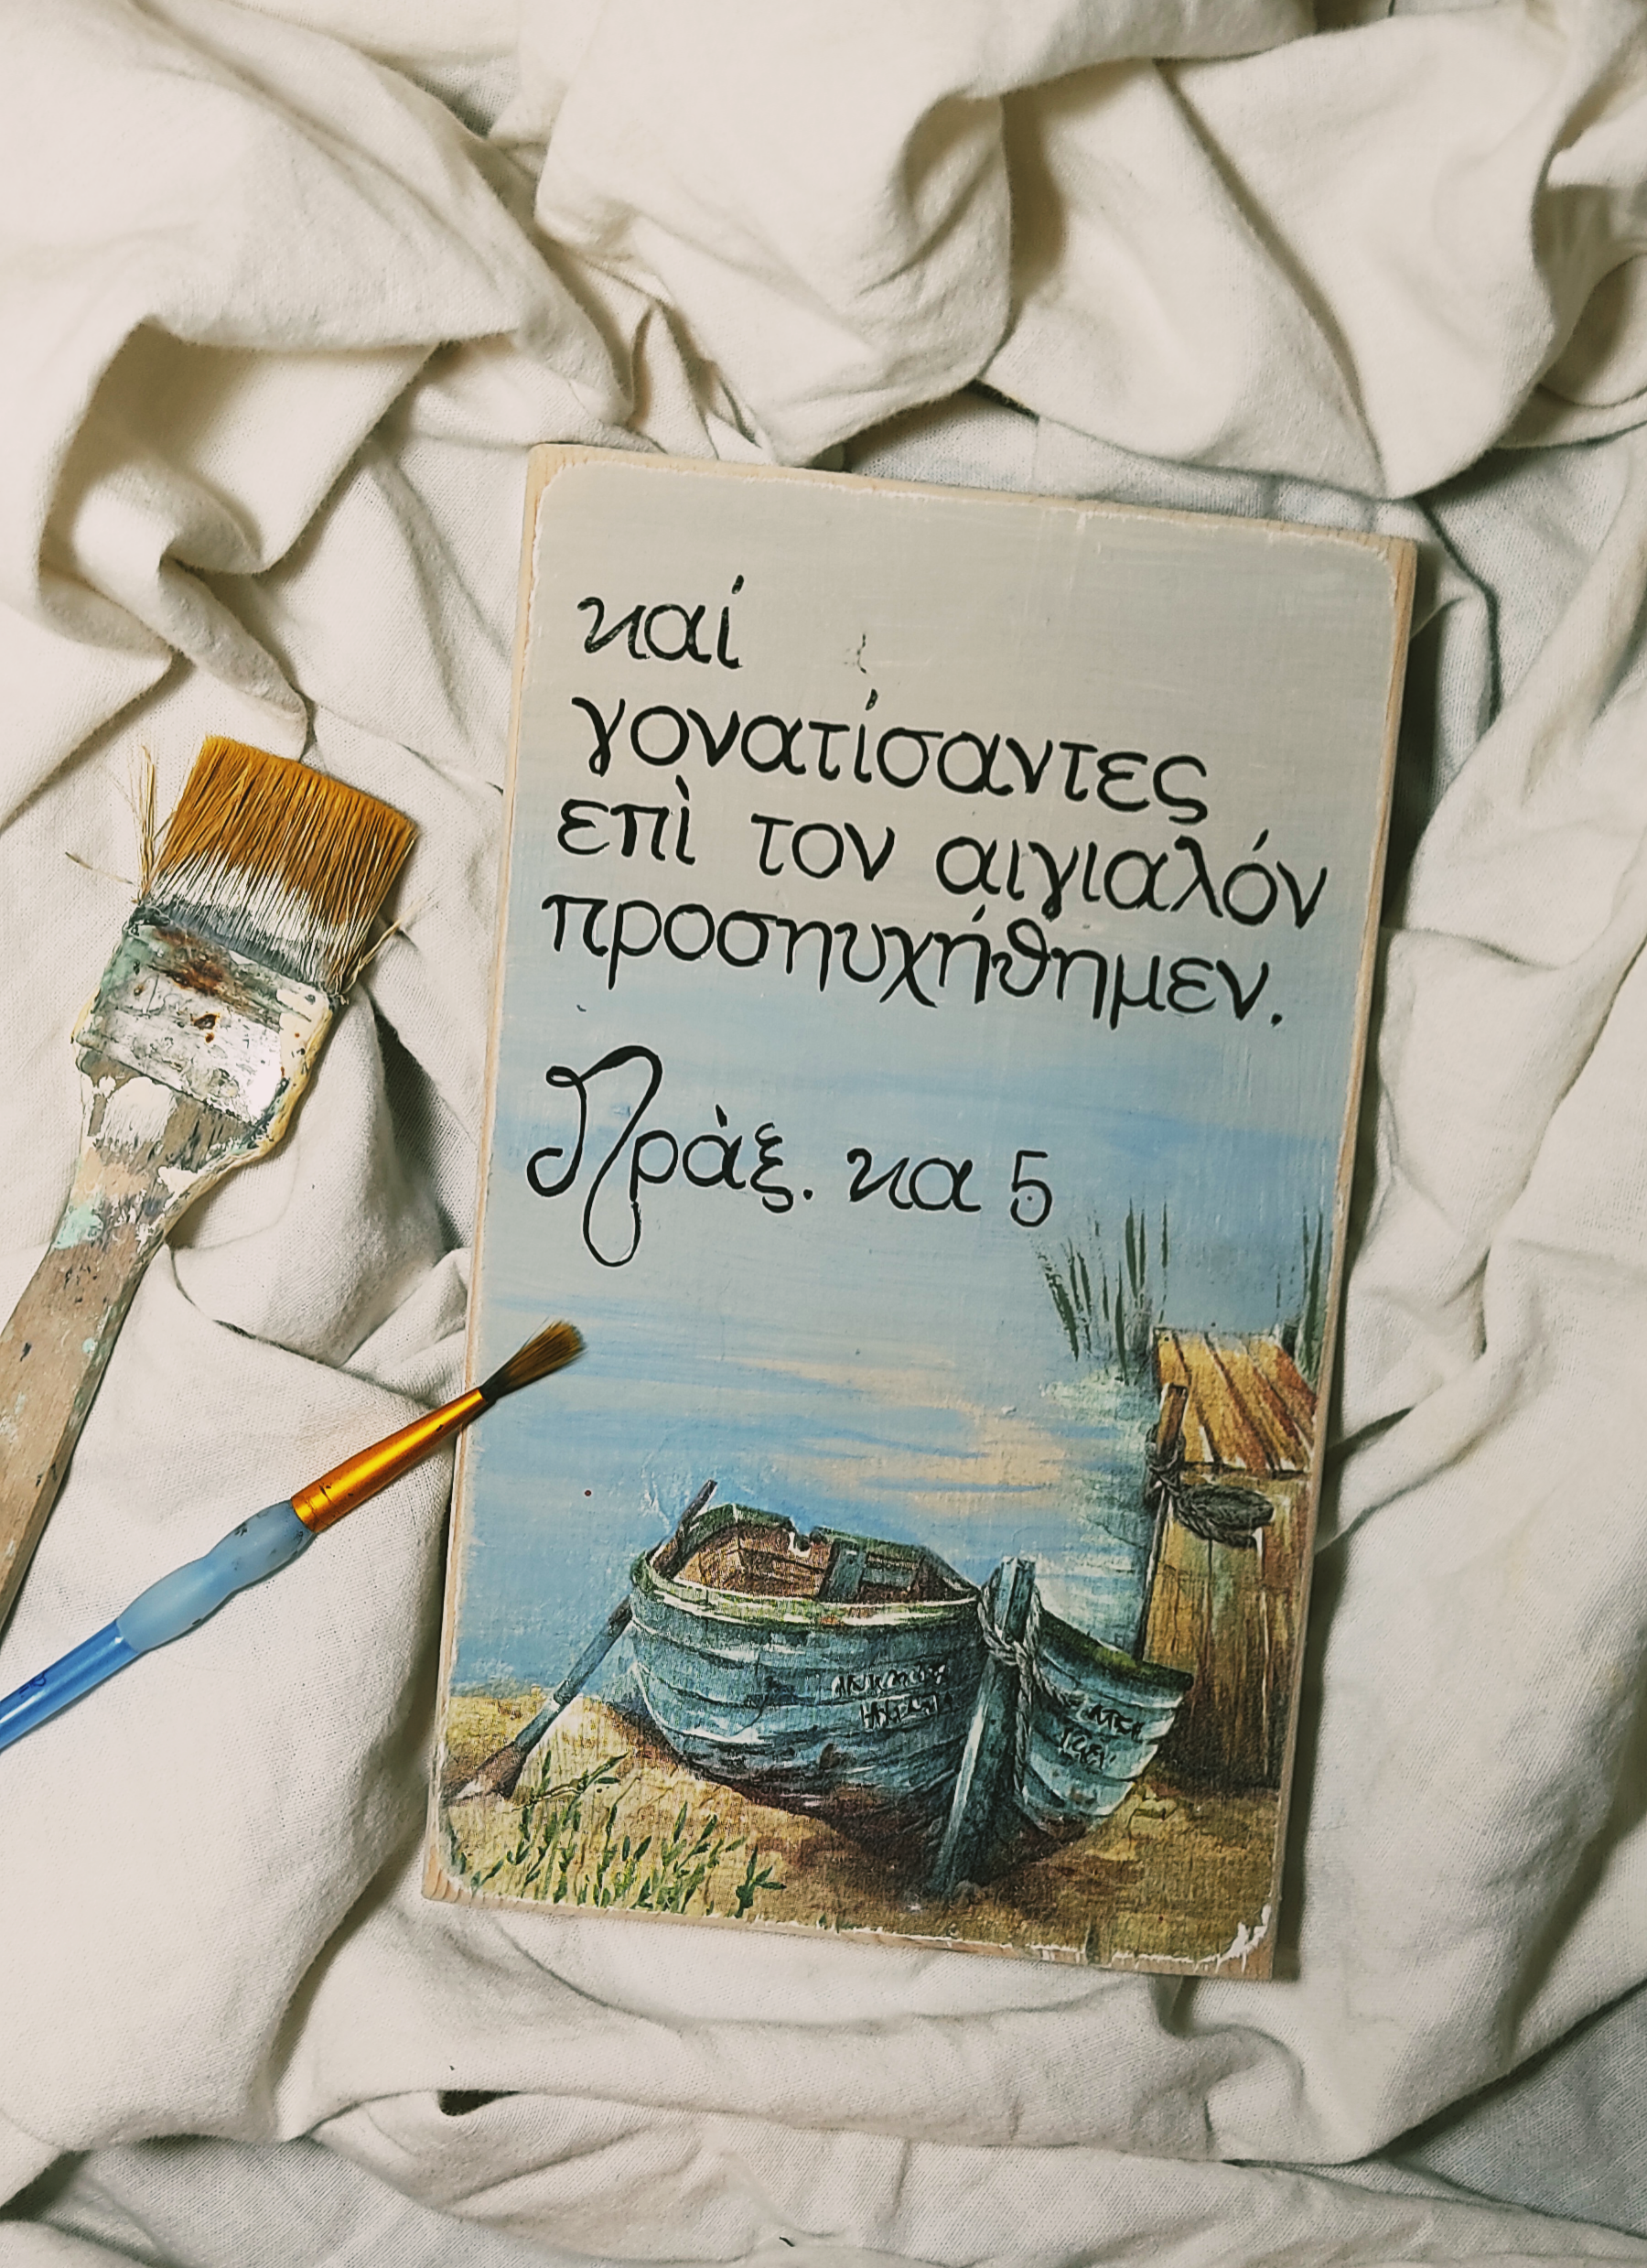 καί
γονατίσαντες
επὶ τον αιγιαλόν
προσηυχήθημεν.
Πράξ. κα 5